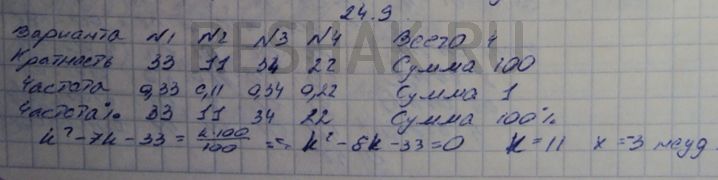 24.9
Варианта №1 №2 №3 №4 Всего 4
Кратность 33 11 34 22 Сумма 100
Частота 0,33 0,11 0,34 0,22 Сумма 1
Частота% 33 11 34 22 Сумма 100%
k²-7k-33 = k·100/100 => k²-8k-33=0 k=11 x=-3 неуд
RESHAK.RU